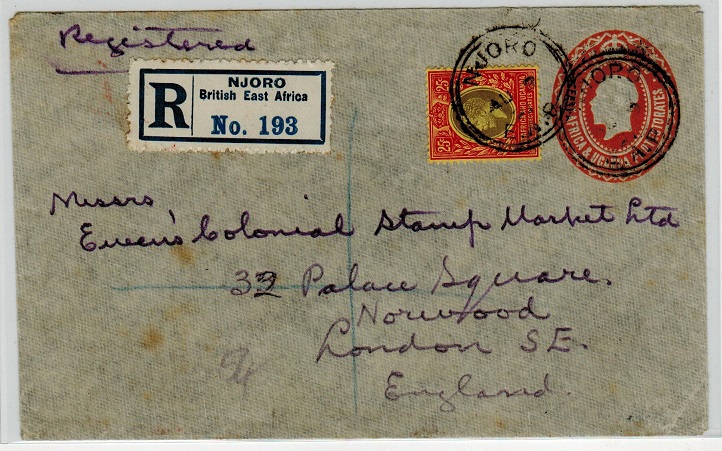 Registered
R
NJORO
British East Africa
No. 193
25c 25c
EAST AFRICA AND UGANDA
PROTECTORATES
NJORO
NJORO
AFRICA & UGANDA PROTECTORATES
Messrs
Ewen's Colonial Stamp Market Ltd
32 Palace Square,
Norwood
London S.E.
England.